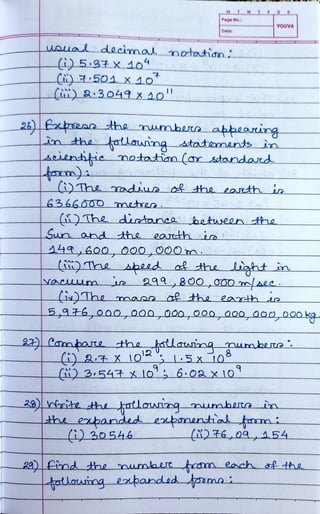 M T W T F S S
Page No.:
Date:
YOUVA
usual decimal notation:
(i) 5.37 x 10⁴
(ii) 7.501 x 10⁷
(iii) 2.3049 x 10¹¹
26) Express the numbers appearing
in the following statements in
scientific notation (or standard
form):
(i) The radius of the earth is
6366000 metres.
(ii) The distance between the
Sun and the earth is
149,600,000,000m.
(iii) The speed of the light in
vacuum is 299,800,000 m/sec.
(iv) The mass of the earth is
5,976,000,000,000,000,000,000,000 kg.
27) Compare the following numbers:
(i) 2.7 x 10¹²; 1.5 x 10⁸
(ii) 3.547 x 10⁹; 6.02 x 10⁹
28) Write the following numbers in
the expanded exponential form:
(i) 30546 (ii) 76,09,154
29) Find the number from each of the
following expanded forms: